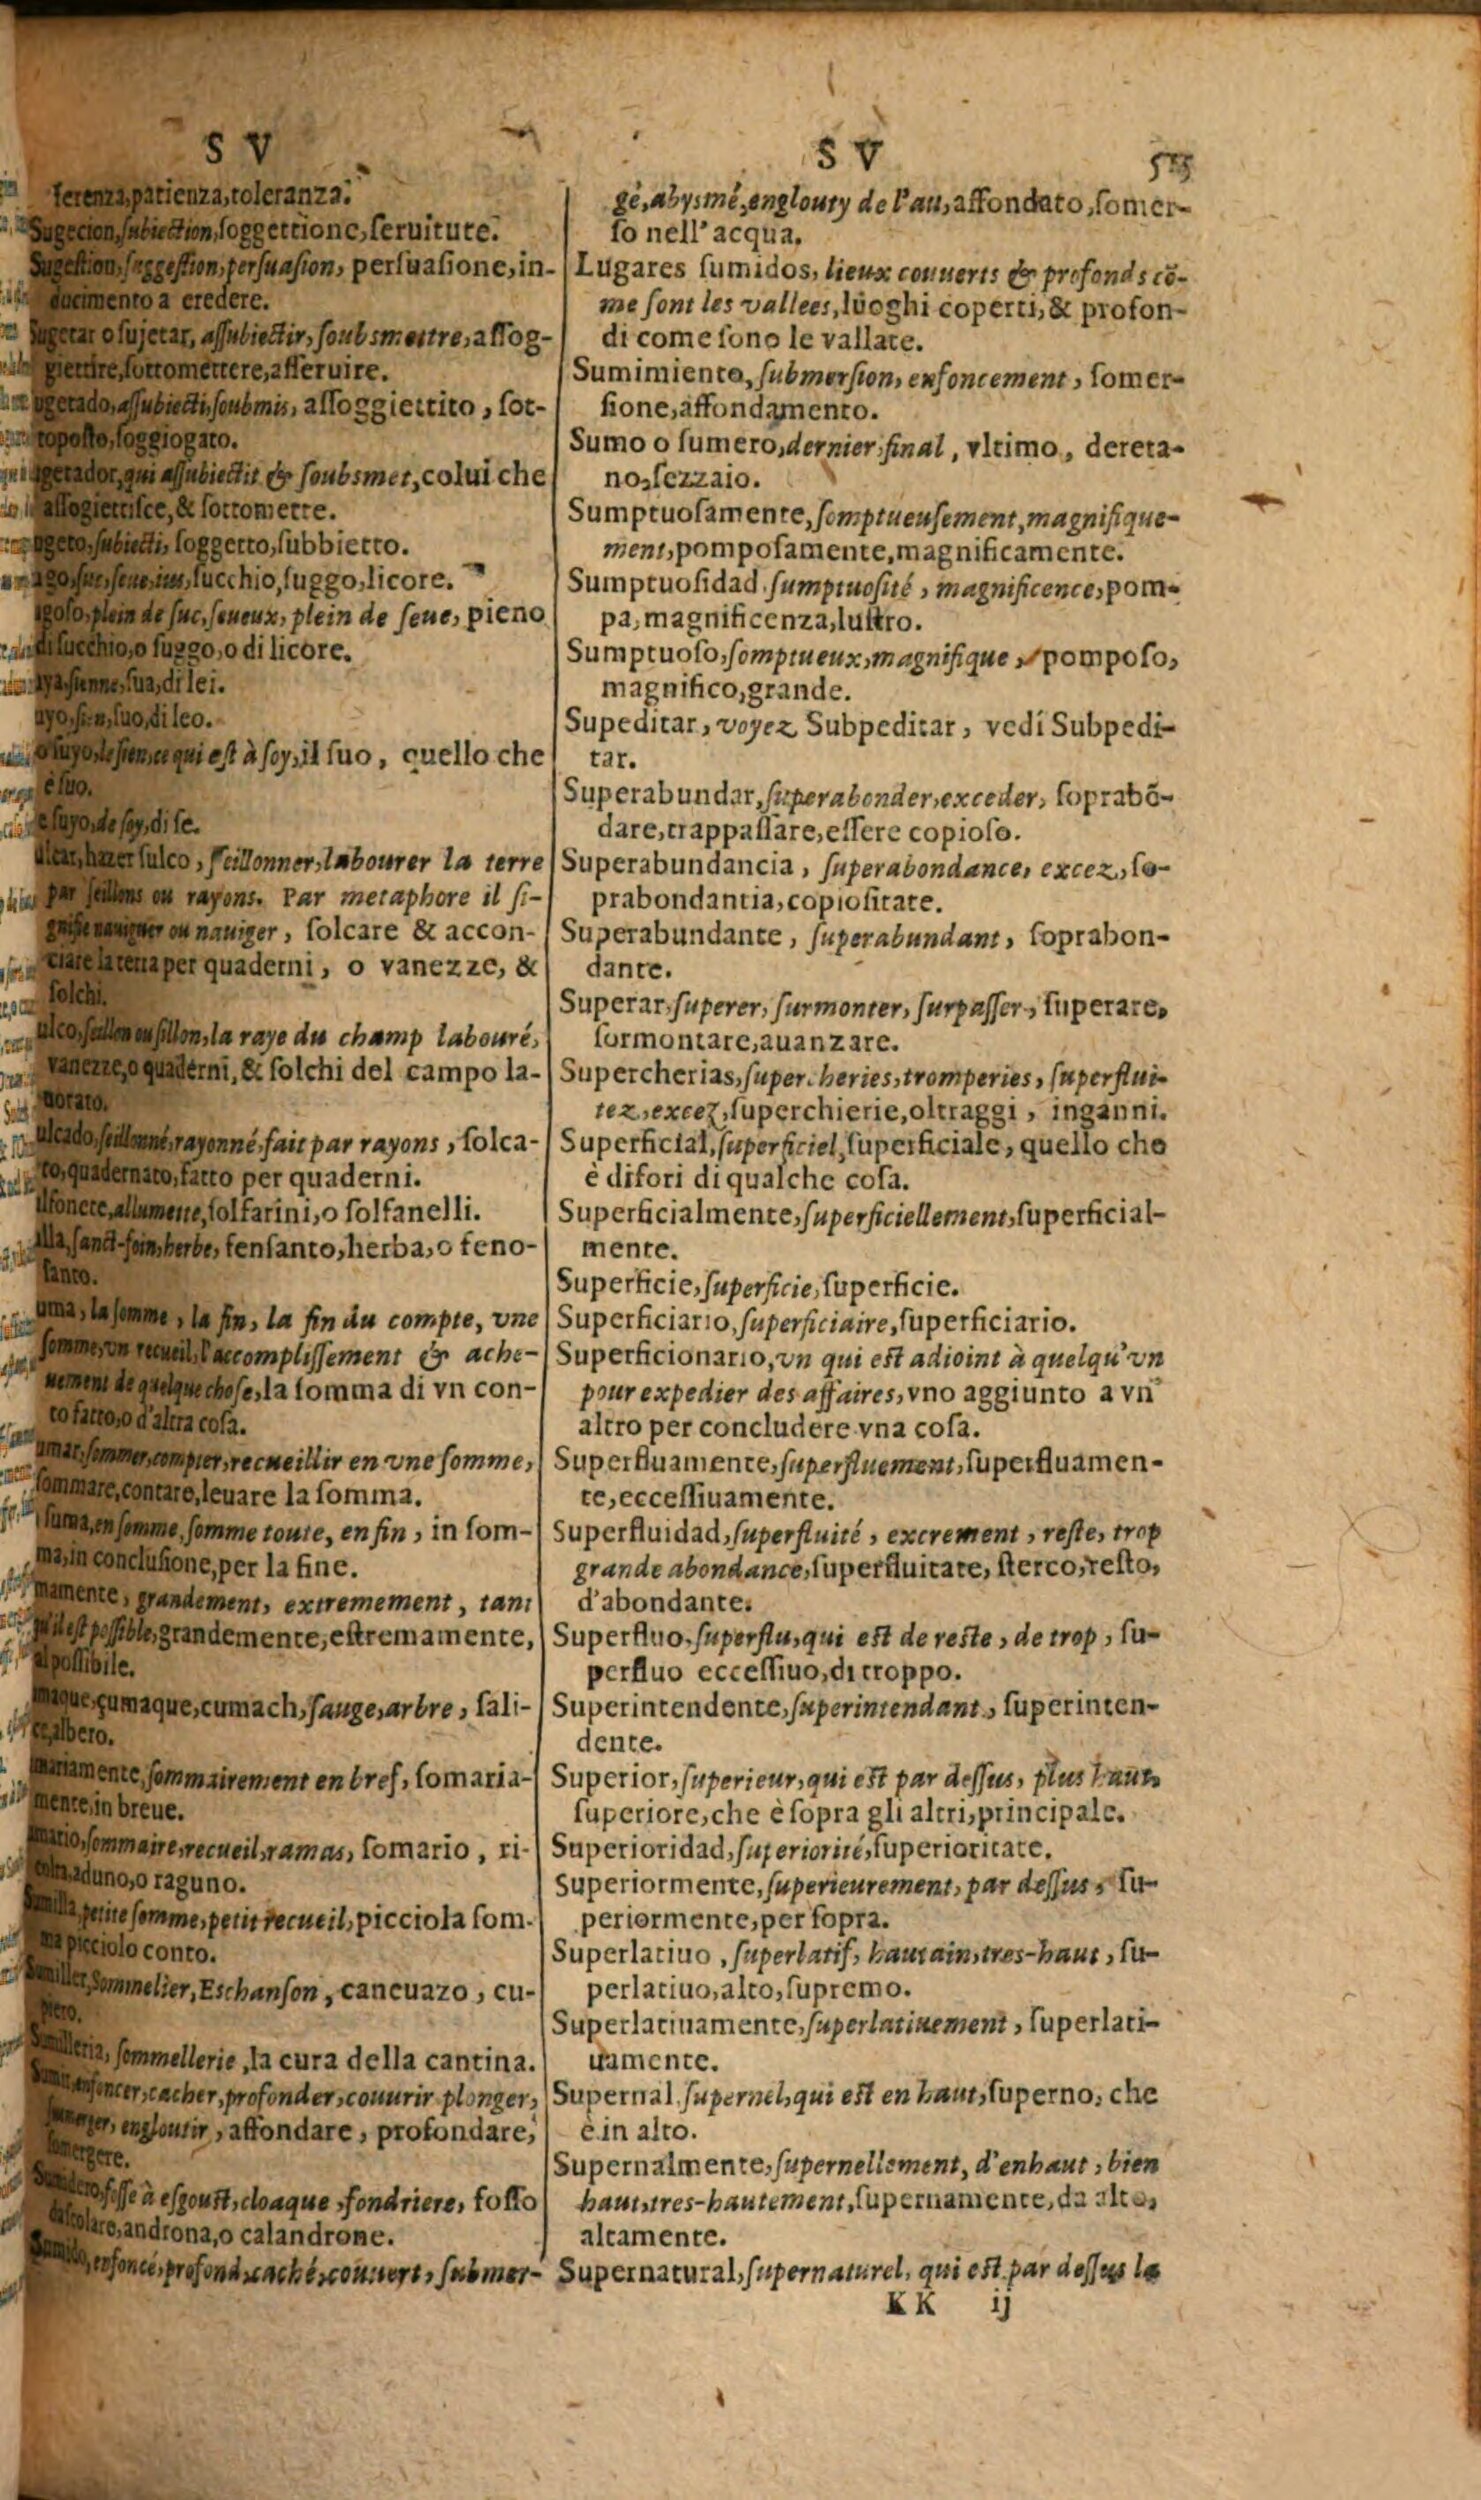 S V
ferenza, patienza, toleranza.
Sugecion, subiection, soggettione, seruitute.
Sugestion, suggestion, persuasion, persuasione, in-
ducimento a credere.
Sugetar o sujetar, assubiectir, soubsmettre, assog-
giettire, sottomettere, asseruire.
ugetado, assubiecti, soubmis, assoggiettito, sot-
toposto, soggiogato.
ugetador, qui assubiectit & soubsmet, colui che
assogiettisce, & sottomette.
ugeto, subiecti, soggetto, subbietto.
ugo, suc, seue, ius, succhio, suggo, licore.
ugoso, plein de suc, seueux, plein de seue, pieno
di succhio, o suggo, o di licore.
uya, sienne, sua, di lei.
uyo, sien, suo, di leo.
o suyo, le sien, ce qui est à soy, il suo, quello che
è suo.
e suyo, de soy, di se.
ulcar, hazer sulco, seillonner, labourer la terre
par seillons ou rayons. Par metaphore il si-
gnifie nauiguer ou nauiger, solcare & accon-
ciare la terra per quaderni, o vanezze, &
solchi.
ulco, seillon ou sillon, la raye du champ labouré,
vanezze, o quaderni, & solchi del campo la-
uorato.
ulcado, seillonné, rayonné, fait par rayons, solca-
to, quadernato, fatto per quaderni.
ulfonete, allumette, solfarini, o solfanelli.
ulla, sanct-foin, herbe, fensanto, herba, o feno-
santo.
uma, la somme, la fin, la fin du compte, vne
somme, vn recueil, l'accomplissement & ache-
uement de quelque chose, la somma di vn con-
to fatto, o d'altra cosa.
umar, sommer, compter, recueillir en vne somme,
sommare, contare, leuare la somma.
suma, en somme, somme toute, en fin, in som-
ma, in conclusione, per la fine.
mamente, grandement, extremement, tant
qu'il est possible, grandemente, estremamente,
al possibile.
maque, çumaque, cumach, sauge, arbre, sali-
ce, albero.
mariamente, sommairement en bref, somaria-
mente, in breue.
mario, sommaire, recueil, ramas, somario, ri-
colta, aduno, o raguno.
Sumilla, petite somme, petit recueil, picciola som-
ma picciolo conto.
Sumiller, Sommelier, Eschanson, caneuazo, cu-
piero.
Sumilleria, sommellerie, la cura della cantina.
Sumir, enfoncer, cacher, profonder, couurir plonger,
submerger, engloutir, affondare, profondare,
somergere.
Sumidero, fosse à esgoust, cloaque, fondriere, fosso
da scolare, androna, o calandrone.
Sumido, enfoncé, profond, caché, couuert, submer-
S V
gé, abysmé, englouty de l'au, affondato, somer-
so nell'acqua.
Lugares sumidos, lieux couuerts & profonds cō-
me sont les vallees, luoghi coperti, & profon-
di come sono le vallate.
Sumimiento, submersion, enfoncement, somer-
sione, affondamento.
Sumo o sumero, dernier, final, vltimo, dereta-
no, sezzaio.
Sumptuosamente, somptueusement, magnifique-
ment, pomposamente, magnificamente.
Sumptuosidad, sumptuosité, magnificence, pom-
pa, magnificenza, lustro.
Sumptuoso, somptueux, magnifique, pomposo,
magnifico, grande.
Supeditar, voyez Subpeditar, vedi Subpedi-
tar.
Superabundar, superabonder, exceder, soprabō-
dare, trappassare, essere copioso.
Superabundancia, superabondance, excez, so-
prabondantia, copiositate.
Superabundante, superabundant, soprabon-
dante.
Superar, superer, surmonter, surpasser, superare,
sormontare, auanzare.
Supercherias, supercheries, tromperies, superflui-
tez, excez, superchierie, oltraggi, inganni.
Superficial, superficiel, superficiale, quello che
è difori di qualche cosa.
Superficialmente, superficiellement, superficial-
mente.
Superficie, superficie, superficie.
Superficiario, superficiaire, superficiario.
Superficionario, vn qui est adioint à quelqu'vn
pour expedier des affaires, vno aggiunto a vn
altro per concludere vna cosa.
Superfluamente, superfluement, superfluamen-
te, eccessiuamente.
Superfluidad, superfluité, excrement, reste, trop
grande abondance, superfluitate, sterco, resto,
d'abondante.
Superfluo, superflu, qui est de reste, de trop, su-
perfluo eccessiuo, di troppo.
Superintendente, superintendant, superinten-
dente.
Superior, superieur, qui est par dessus, plus haut,
superiore, che è sopra gli altri, principale.
Superioridad, superiorité, superioritate.
Superiormente, superieurement, par dessus, su-
periormente, per sopra.
Superlatiuo, superlatif, hautain, tres-haut, su-
perlatiuo, alto, supremo.
Superlatiuamente, superlatiuement, superlati-
uamente.
Supernal, supernel, qui est en haut, superno, che
è in alto.
Supernalmente, supernellement, d'enhaut, bien
haut, tres-hautement, supernamente, da alto,
altamente.
Supernatural, supernaturel, qui est par dessus la
KK ij